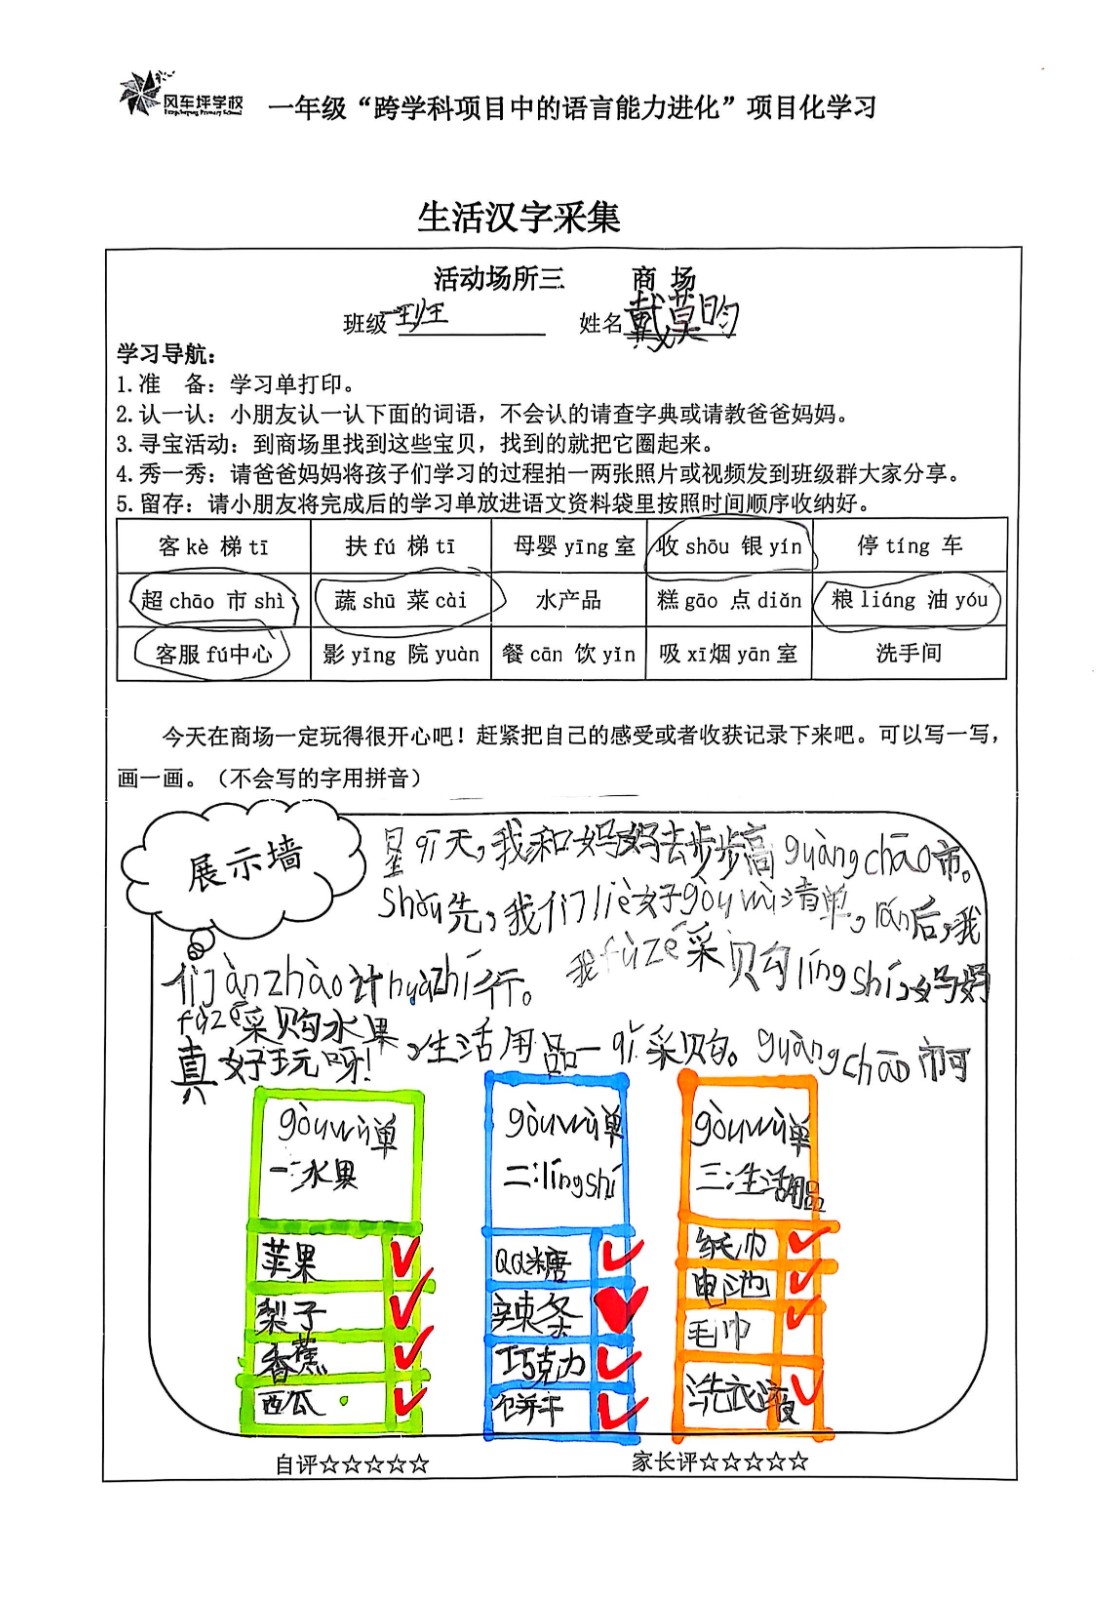 风车坪学校
一年级“跨学科项目中的语言能力进化”项目化学习
生活汉字采集
活动场所三 商 场
班级 一班 姓名 戴莫昀
学习导航：
1.准 备：学习单打印。
2.认一认：小朋友认一认下面的词语，不会认的请查字典或请教爸爸妈妈。
3.寻宝活动：到商场里找到这些宝贝，找到的就把它圈起来。
4.秀一秀：请爸爸妈妈将孩子们学习的过程拍一两张照片或视频发到班级群大家分享。
5.留存：请小朋友将完成后的学习单放进语文资料袋里按照时间顺序收纳好。
客kè 梯tī 扶fú 梯tī 母婴yīng室 收shōu 银yín 停tíng 车
超chāo 市shì 蔬shū 菜cài 水产品 糕gāo 点diǎn 粮liáng 油yóu
客服fú中心 影yǐng 院yuàn 餐cān 饮yǐn 吸xī烟yān室 洗手间
今天在商场一定玩得很开心吧！赶紧把自己的感受或者收获记录下来吧。可以写一写，
画一画。（不会写的字用拼音）
展示墙
星qī天，我和妈妈去步步高guàngchāo市。
shǒu先，我们liè好gòuwù清单，rán后，我
们ànzhào计huàzhí行。我fùzé采购língshí，妈妈
fùzé采购水果，生活用品一qǐ采购。guàngchāo市可
真好玩呀！
gòuwù单
一：水果
苹果
梨子
香蕉
西瓜
gòuwù单
二：língshí
QQ糖
辣条
巧克力
饼干
gòuwù单
三：生活用品
纸巾
电池
毛巾
洗衣液
自评☆☆☆☆☆ 家长评☆☆☆☆☆